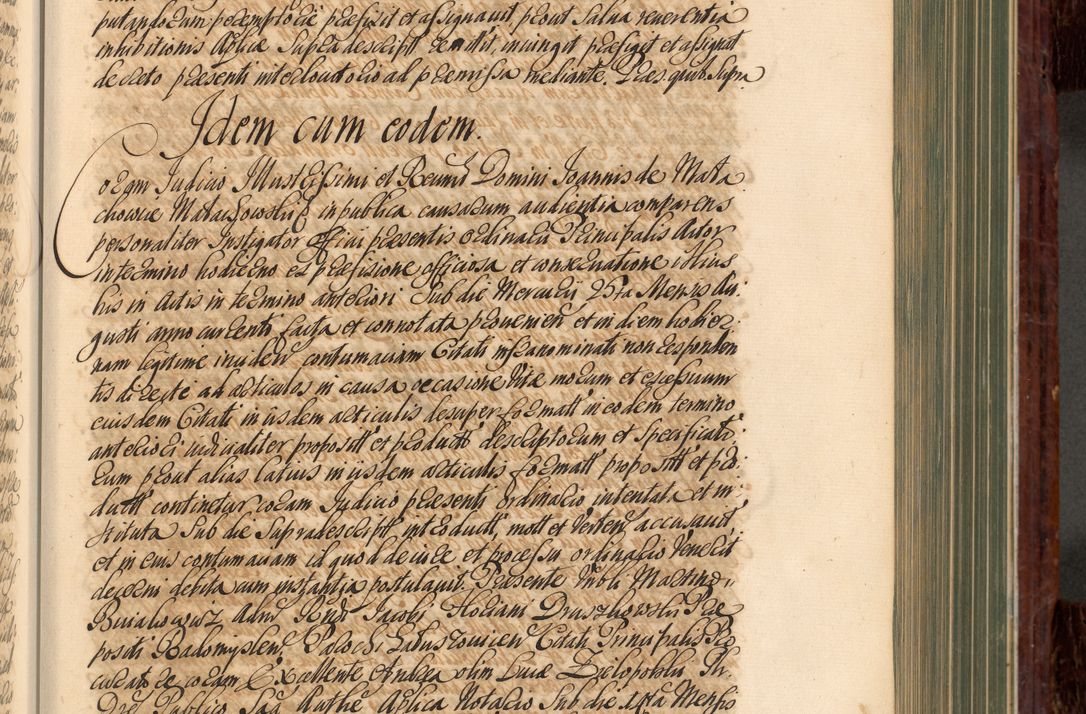 putandoram peremptorie præfixit et assignavit, prout salva reverentia
inhibitionis Aplicæ supradescript emittit, iniungit præfiget et assignat
decreto præsenti interlocutorio ad præmissa mediante. Præs: quib9 supra
Idem cum eodem.
Coram Judicio Illustrissimi et Reverendissimi Domini Joannis de Mała
chowice Małachowski in publica causarum audientia comparens
personaliter Instigator officii præsentis ordinarii Principalis Actor
in termino hodierno ex præfixione officiosa et conservatione illius
his in Actis in termino anteriori Sub die Mercurii 25ta Mensis Au:
gusti anno currenti facta et connotata proveniens et in diem hodier
nam legitime inciden contumaciam Citati infranominati non responden
tis directe ad articulos in causa occasione vitæ morum et excessuum
eiusdem Citati in iisdem articulis desuper formatt in eodem termino
anteriori iudicialiter propositt et productt descriptorum et specificato
rum prout alias latius in iisdem articulis formatt propositt et pro
ductt continetur coram Judicio præsenti ordinario intentata et in
stituta Sub die supradescript introductt, mott et verten accusavit,
et in eius contumaciam id quod de iure et processu ordinario venerit
decerni debita cum instantia postulavit. Præsente Nobli Martino
Adm Rndi Jacobi Floriani Præ
positi Radomyslen, Citati Principalis Pro
curatore coram Excellente Andrea olim Lucæ Th
Drei Publico Sac Authe Aplica Notario Sub die 14ta Mensis